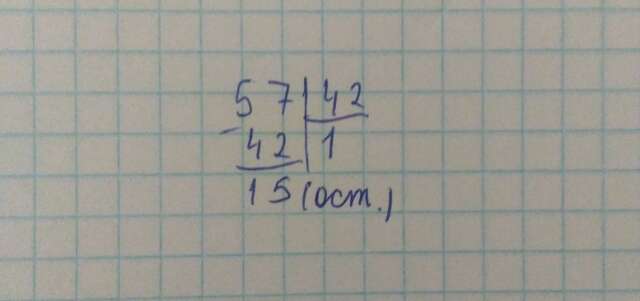 57|42
-42|1
15(ост.)